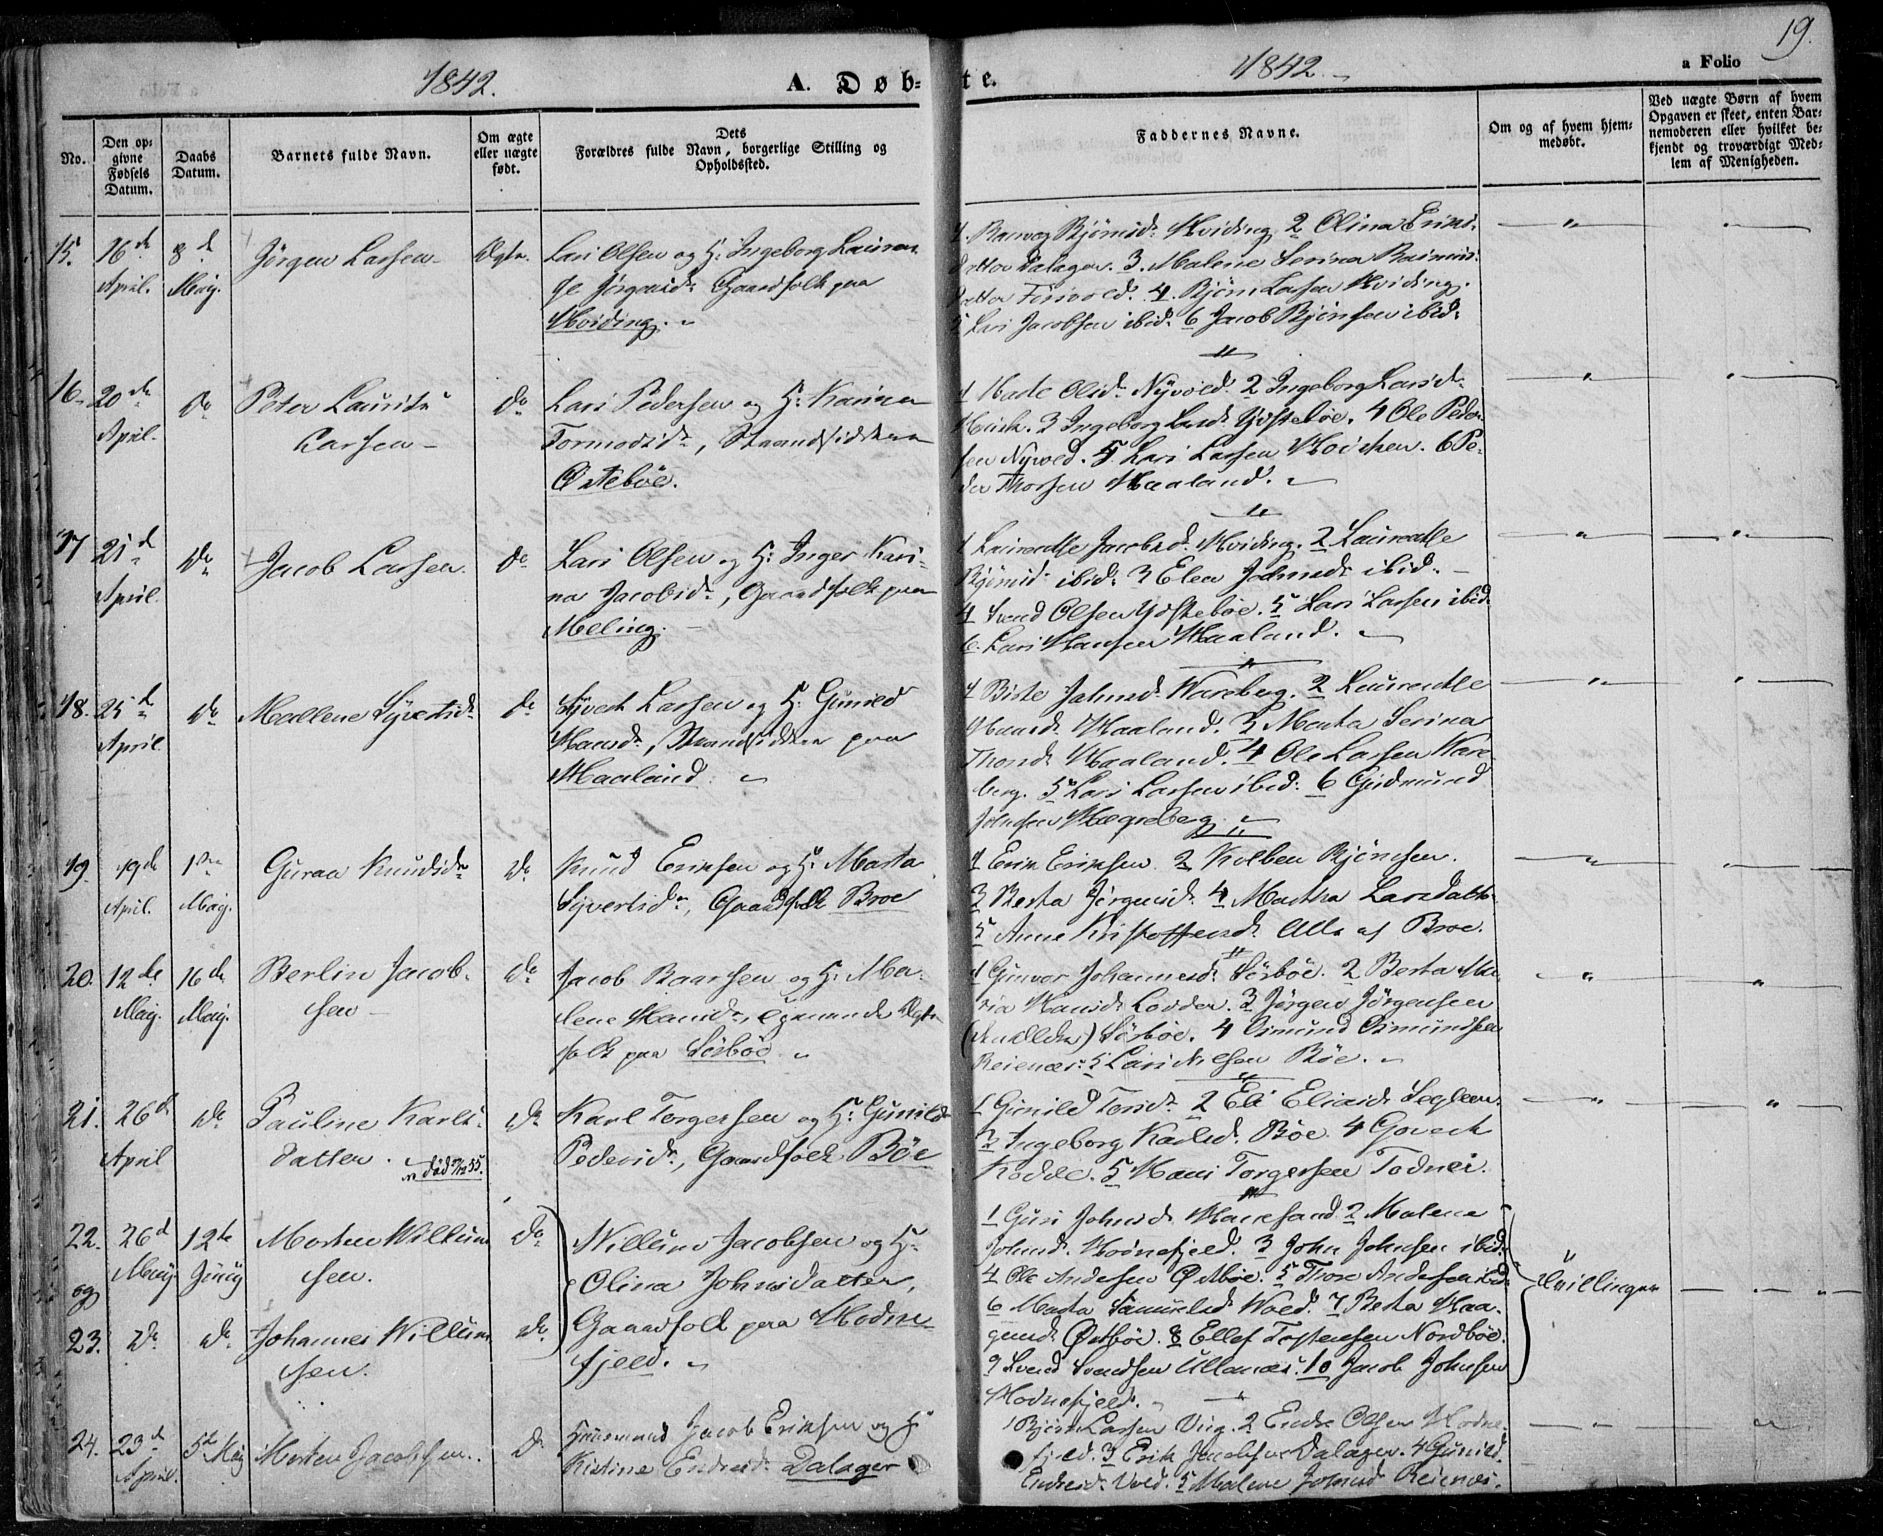 1842. A. Døb-
te. 1842. a Folio 19.
No.
Den op-
givne
Fødsels
Datum.
Daabs
Datum.
Barnets fulde Navn.
Om ægte
eller uægte
født.
Dets
Forældres fulde Navn, borgerlige Stilling og
Opholdssted.
Faddernes Navne.
Om og af hvem hjem-
medøbt.
Ved uægte Børn af hvem
Opgaven er skeet, enten Bar-
nemoderen eller hvilket be-
kjendt og troværdigt Med-
lem af Menigheden.
15. 16de April. 8d Maij. Jørgen Larsen Ægte.
Lars Olsen og H: Ingeborg Lauren-
se Jørgensdr Gaardfolk paa
Hviding.
1. Bjørnsdr Hviding 2 Olina Eriks-
datter Dalager. 3. Malene Serina Rasmus-
datter. 4. Bjørn Larsen Hviding.
5 Lars Jacobsen ibid: 6 Jacob Bjørnsen ibid:
16. 20de April. Do Peter Laurits
Larsen Do
Lars Pedersen og H: Karina
Tormodsdr, Strandsiddere
Østebøe.
1 Olsdr Nyvold. 2 Ingeborg Larsdr
3 Ingeborg Larsdr Ydstebøe. 4 Ole Peder-
sen Nyvold. 5. Lars Larsen. 6 Pe-
der Thorsen Haaland.
17 21d April. Do Jacob Larsen. Do
Lars Olsen og H: Inger Kari-
na Jacobsdr, Gaardfolk paa
Meling.
1 Laurentse Jacobsdr Hviding. 2 Laurentse
Bjørnsdr ibid: 3 Elen Johnsdr ibid.
4 Svend Olsen Ydstebøe. 5 Lars Larsen ibid
6. Lars Hansen Haaland.
18. 25d April Do Mallene Syvertsdr Do
Syvert Larsen og H: Gunild
Hansdr, Strandsiddere paa
Haaland.
1 Johnsdr Wareberg. 2 Laurentse
Hansdr Haaland. 3 Marta Serina
Thorsdr Haaland. 4 Ole Larsen Ware-
berg. 5 Lars Larsen ibid: 6 Gudmund
Johnsen
19. 19de April. 1ste Maij. Guraa Knudsdr Do
Knud Eriksen og H: Marta
Syvertsdr, Gaardfolk Broe
1 Erik Eriksen. 2 Kolben Bjørnsen.
3 Berta Jørgensdr 4 Martha Larsdatter
5 Anne Kristoffersdr Alle af Broe.
20. 12de Maij. 16de Maij. Berlin Jacob-
sen Do
Jacob Baarsen og H: Ma-
lene Hansdr,
folk paa Sørbøe.
1 Gunvor Johannesdr Sørbøe. 2 Berta Ma-
ria Hansdr Lodden. 3 Jørgen Jørgensen
Sørbøe. 4 Osmund Osmundsen
Reienæs: 5 Lars Nilsen Bøe.
21. 26d April Do Pauline Karls-
datter. Do
død
Karl Torgersen og H: Gunild
Pedersdr, Gaardfolk Bøe
1 Gunild Torsdr 2 Eli Eliasdr
3 Ingeborg Karlsdr Bøe. 4 Govert
Kodde. 5 Hans Torgersen Todnes.
22. 26d Maij. 12te Junij Morten Willum-
sen. Do
og
23. Do Do Johannes Willum-
sen. Do
Willum Jacobsen og H:
Olina Johnsdatter,
Gaardfolk paa Hodne-
fjeld.
1 Guri Johnsdr 2 Malene
Johnsdr Hodnefjeld. 3 John Johnsen ibid:
4 Ole Andersen Østbøe. 5 Thore Andersen ibid
6 Marta Samuelsdr Wold. 7 Berta Haa-
gensdr Østbøe. 8 Ellef Tostensen Nordbøe.
9 Svend Svendsen Ullanæs. 10 Jacob Johnsen
Hodnefjeld.
Tvillinger
24. 23d April. 5d Maij Morten Jacobsen. Do
Huusmand Jacob Eriksen og H:
Kistine Endresdr Dalager
1 Bjørn Larsen Viig. 2 Endre Olsen Hodne-
fjeld. 3 Erik Jacobsen Dalager. 4 Gunild
Endresdr Vold. 5 Malene Johnsdr Reienæs.